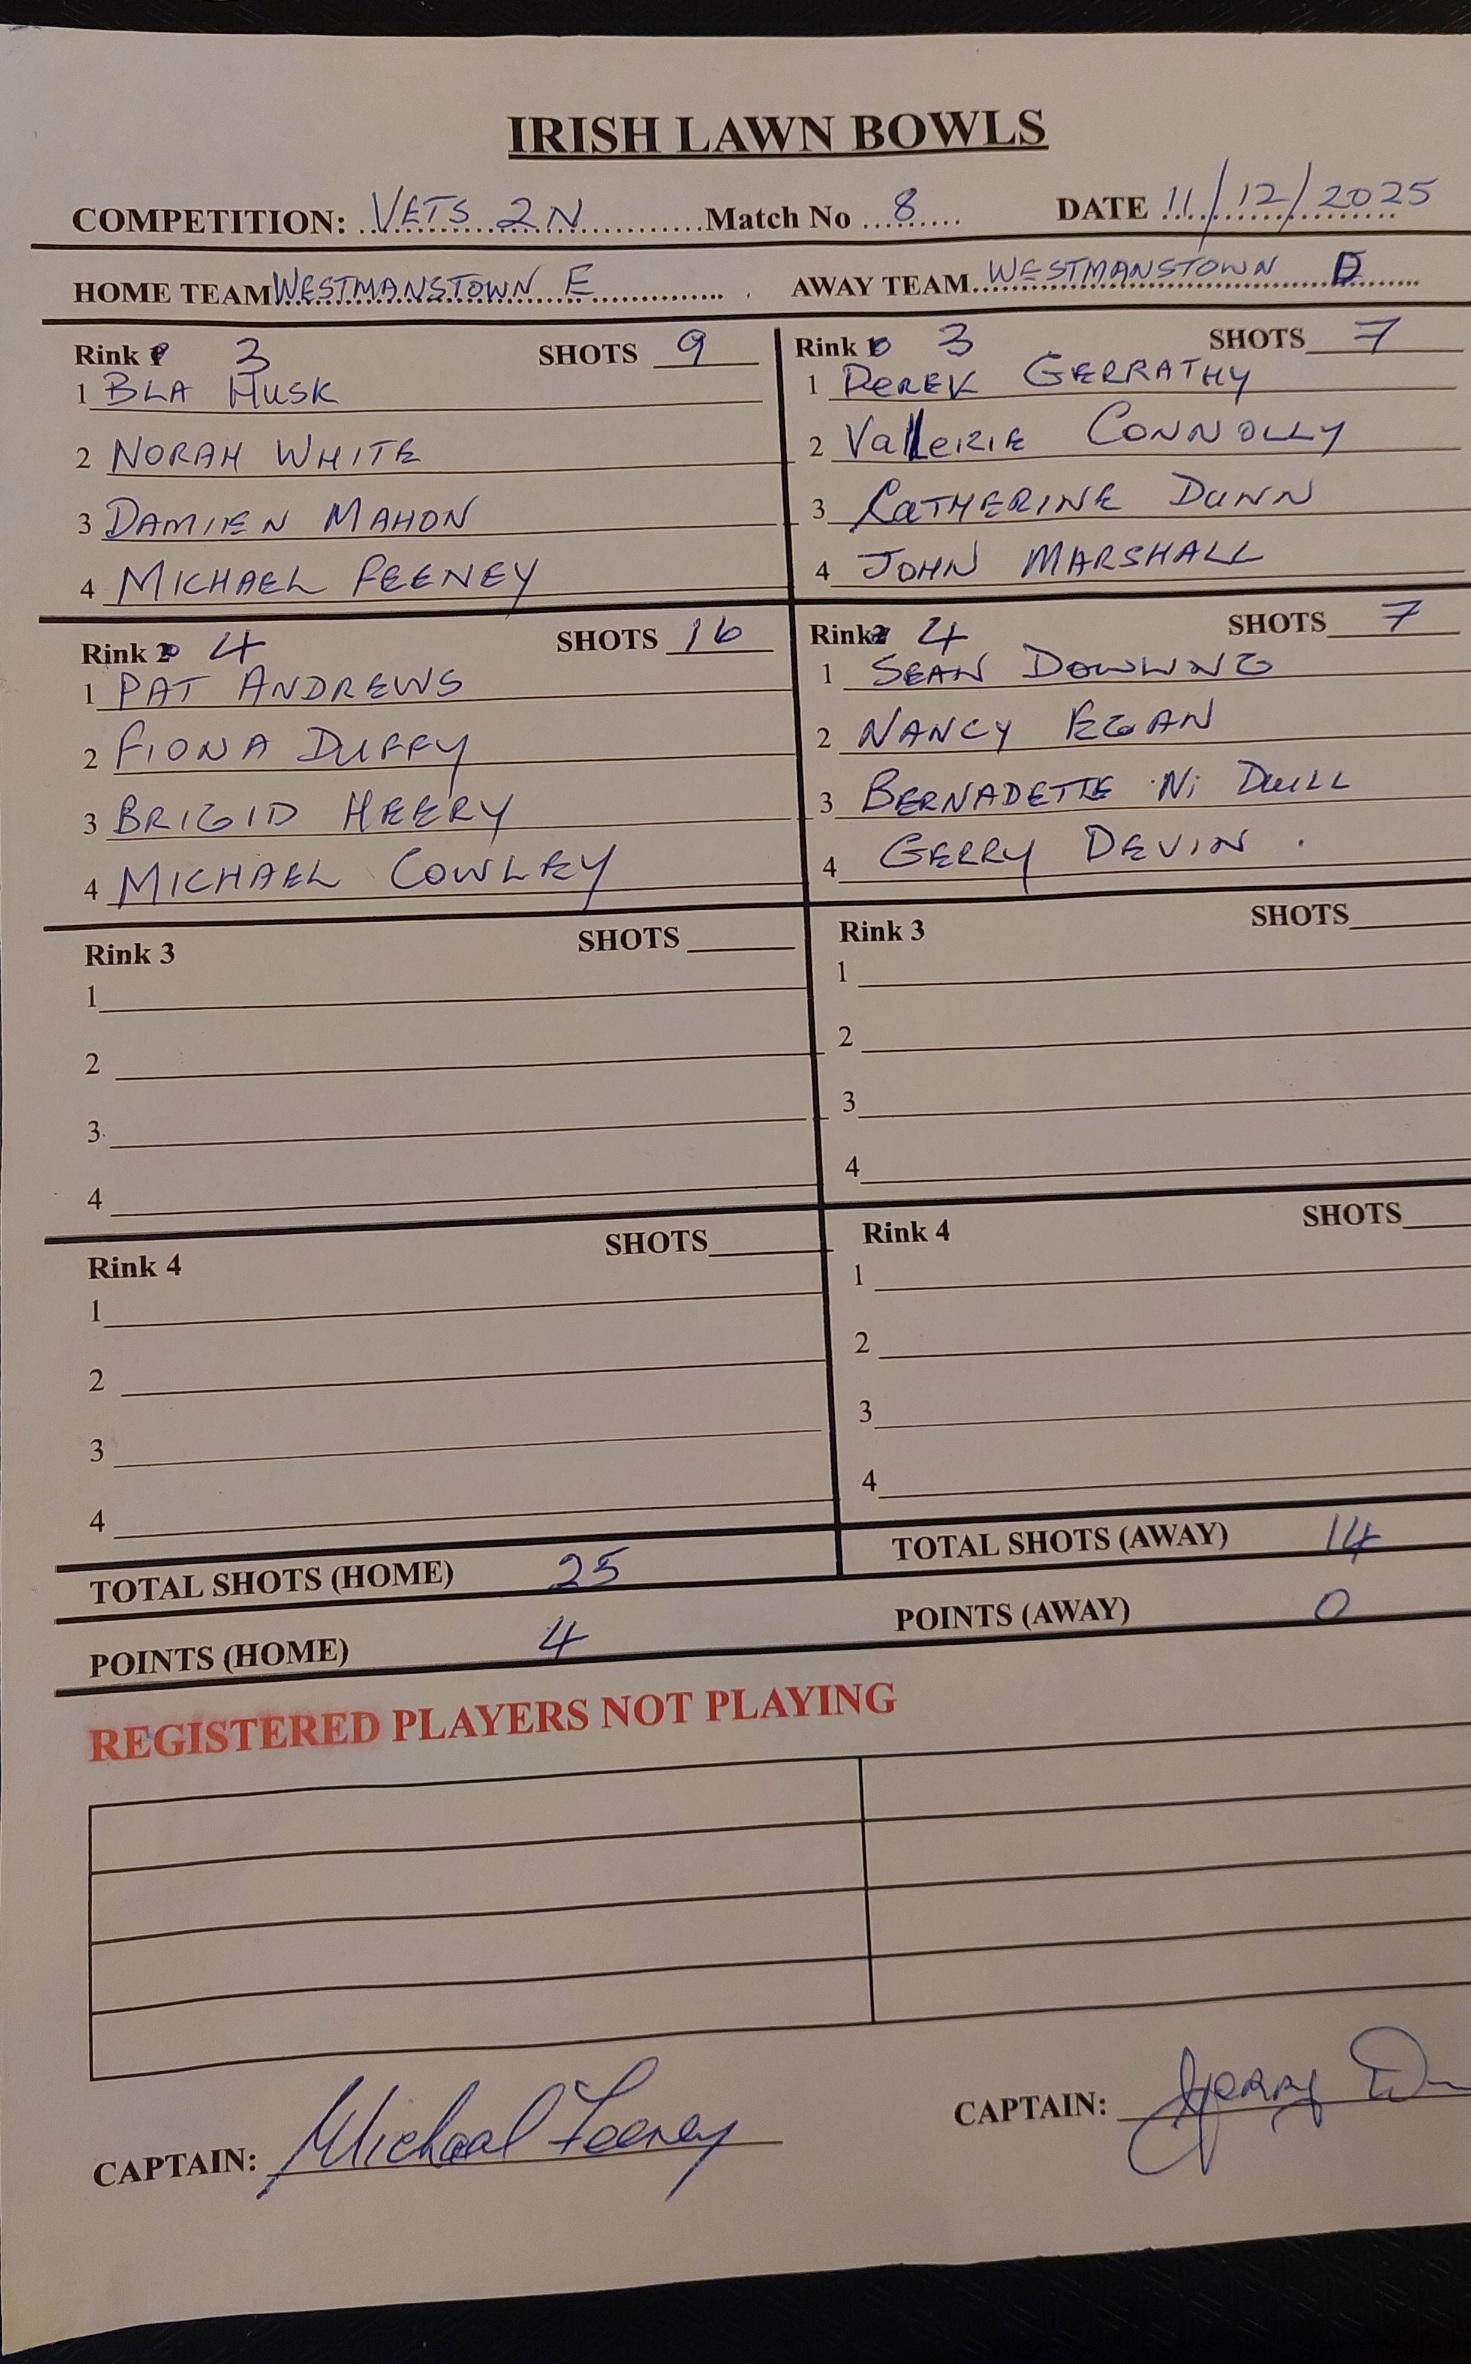 IRISH LAWN BOWLS
COMPETITION: VETS 2N Match No 8 DATE 11/12/2025
HOME TEAM WESTMANSTOWN E AWAY TEAM WESTMANSTOWN D
Rink 3 SHOTS 9
1 BLA HUSK
2 NORAH WHITE
3 DAMIEN MAHON
4 MICHAEL FEENEY
Rink 3 SHOTS 7
1 DEREK GERRATHY
2 VALLERIE CONNOLLY
3 CATHERINE DUNN
4 JOHN MARSHALL
Rink 4 SHOTS 16
1 PAT ANDREWS
2 FIONA DUFFY
3 BRIGID HEERY
4 MICHAEL COWLEY
Rink 4 SHOTS 7
1 SEAN DOWLING
2 NANCY EGAN
3 BERNADETTE Ni DUILL
4 GERRY DEVIN
Rink 3 SHOTS
1
2
3
4
Rink 3 SHOTS
1
2
3
4
Rink 4 SHOTS
1
2
3
4
Rink 4 SHOTS
1
2
3
4
TOTAL SHOTS (HOME) 25 TOTAL SHOTS (AWAY) 14
POINTS (HOME) 4 POINTS (AWAY) 0
REGISTERED PLAYERS NOT PLAYING
CAPTAIN: Michael Feeney CAPTAIN: Gerry